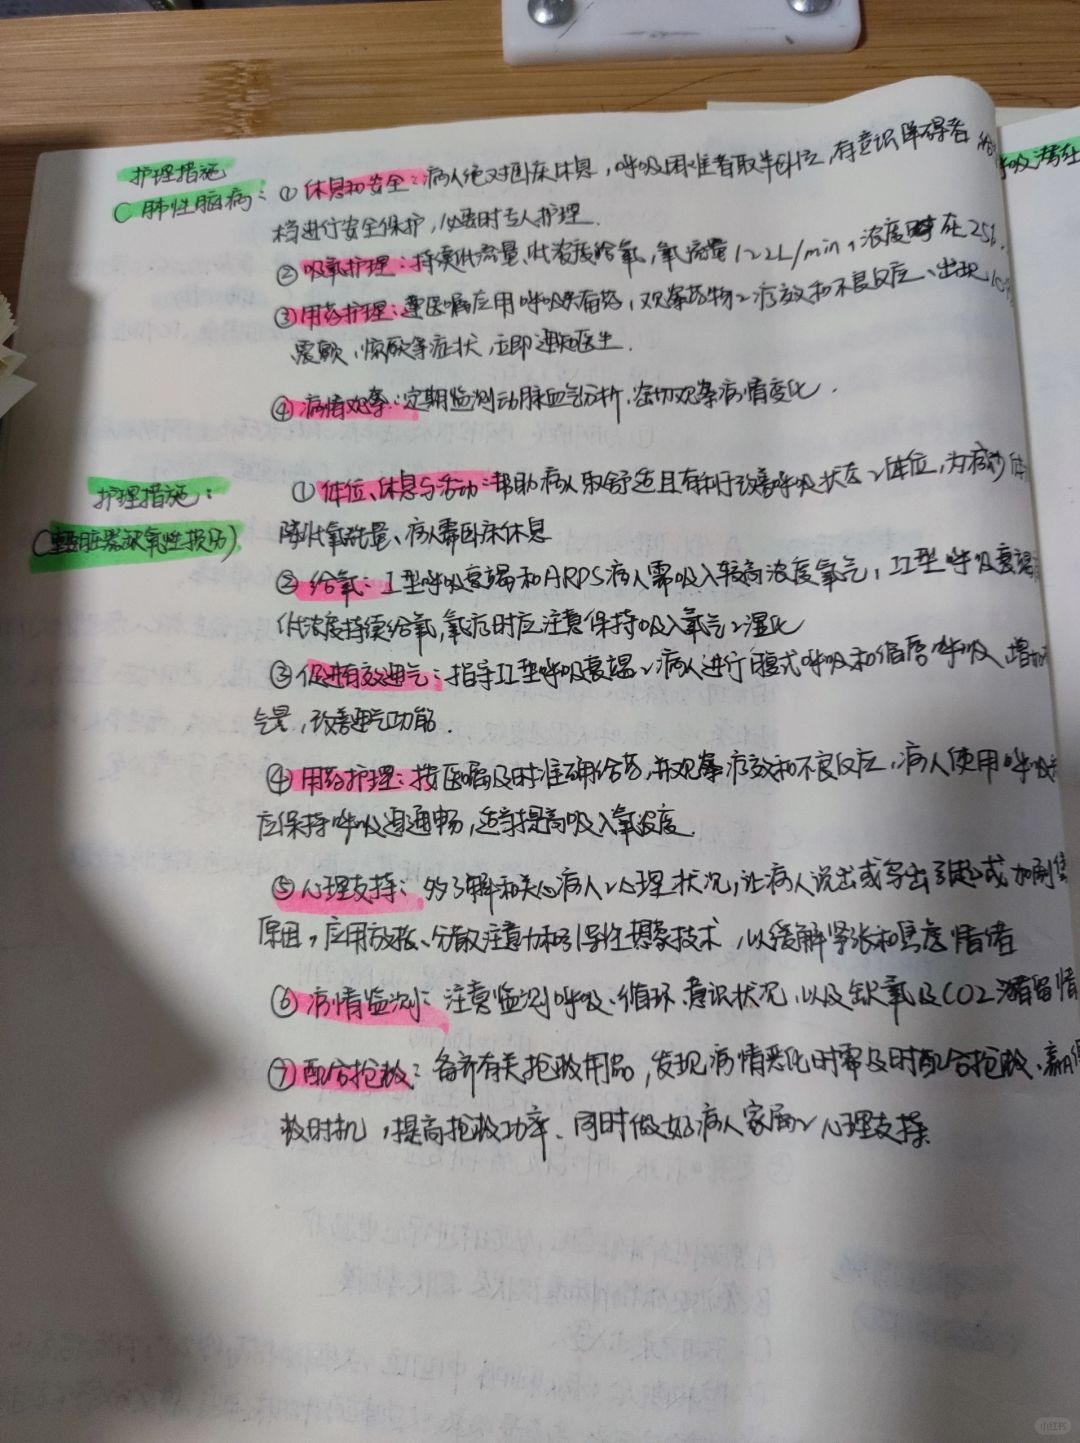 护理措施
(肺性脑病:
①休息和安全:病人绝对卧床休息,呼吸困难者取半卧位,有意识障碍者
档进行安全保护,必要时专人护理.
②吸氧护理:持续低流量、低浓度给氧,氧流量1~2L/min,浓度 在25%
③用药护理:遵医嘱应用呼吸兴奋药,观察药物~疗效和不良反应、出现
震颤、惊厥等症状,立即通知医生.
④病情观察:定期监测动脉血气分析,密切观察病情变化.
护理措施:
(重要脏器缺氧性损伤)
①体位、休息与活动:帮助病人取舒适且有利于改善呼吸状态~体位,为减少体
降低氧耗量、病人需卧床休息
②给氧:I型呼吸衰竭和ARDS病人需吸入较高浓度氧气,II型呼吸衰竭
低浓度持续给氧,氧疗时应注意保持吸入氧气~湿化
③促进有效通气:指导II型呼吸衰竭~病人进行腹式呼吸和缩唇呼吸、增加
气量,改善通气功能.
④用药护理:按医嘱及时准确给药,并观察疗效和不良反应,病人使用呼吸
应保持呼吸道通畅,适当提高吸入氧浓度.
⑤心理支持:多了解和关心病人~心理状况,让病人说出或写出引起或加剧焦
原因,应用放松、分散注意力和引导性想象技术,以缓解紧张和焦虑情绪
⑥病情监测:注意监测呼吸、循环、意识状况,以及缺氧及CO2潴留情
⑦配合抢救:备齐有关抢救用品,发现病情恶化时需及时配合抢救、赢得
救时机,提高抢救功率、同时做好病人家属~心理支持.
呼吸
小红书